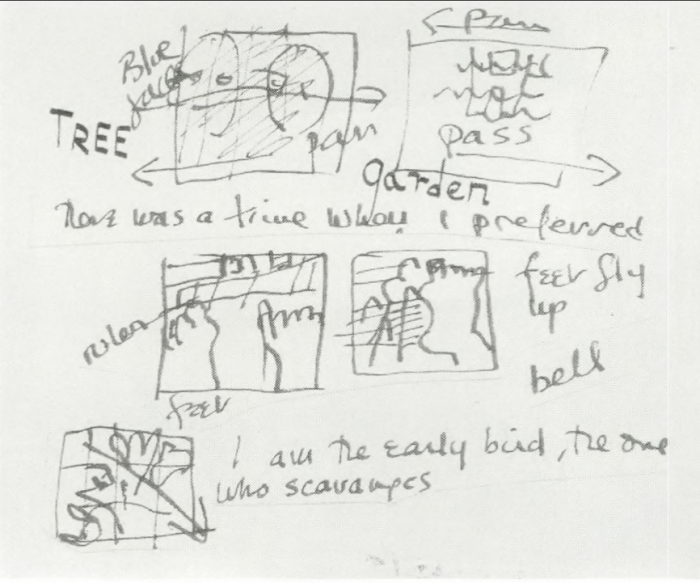 Blue
TREE
pan
pass
garden
There was a time when I preferred
feet fly
up
bell
feet
I am the early bird, the one
who scavanges